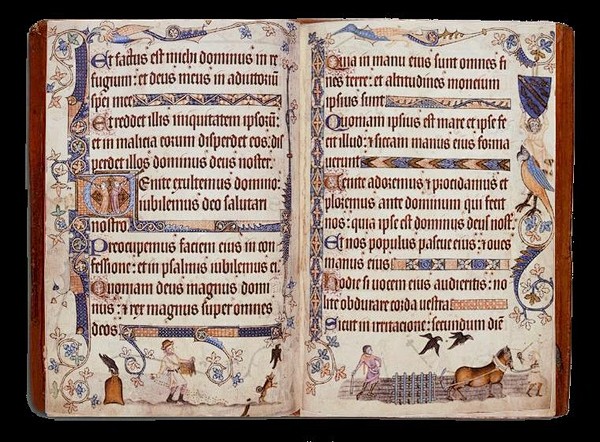 Et factus est michi dominus in re
fugium: et deus meus in adiutoriū
spei mee
Et reddet illis iniquitatem ipsorū:
et in malicia eorum disperdet eos: dis
perdet illos dominus deus noster.
Venite exultemus domino:
iubilemus deo salutari
nostro
Preocupemus faciem eius in con
fessione: et in psalmis iubilemus ei.
Quoniam deus magnus domi
nus: et rex magnus super omnes
deos
Quia in manu eius sunt omnes fi
nes terre: et altitudines moncium
ipsius sunt
Quoniam ipsius est mare et ipse fe
cit illud: et siccam manus eius forma
uerunt
Venite adoremus et procidamus et
ploremus ante dominum qui fecit
nos: quia ipse est dominus deus nost̄.
Et nos populus pascue eius: et oues
manus eius
Hodie si uocem eius audieritis: no
lite obdurare corda uestra
Sicut in irritacione: secundum diē